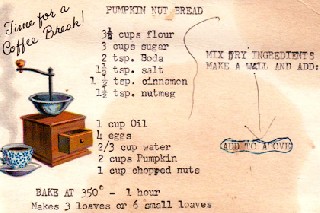 Time for a
Coffee Break!
PUMPKIN NUT BREAD
3½ cups flour
3 cups sugar
2 tsp. Soda
1½ tsp. salt
1 ½ tsp. cinnamon
1½ tsp. nutmeg
MIX DRY INGREDIENTS
MAKE A WELL AND ADD:
1 cup Oil
4 eggs
2/3 cup water
2 cups Pumpkin
1 cup chopped nuts
ADD TO ABOVE
BAKE AT 350° - 1 hour
Makes 3 loaves or 6 small loaves